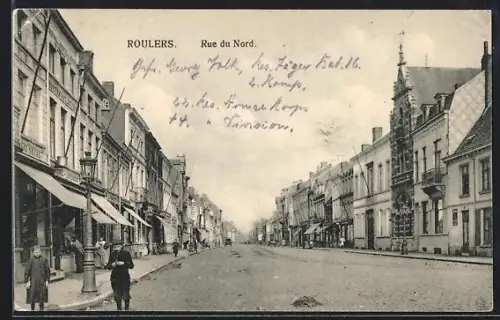 ROULERS. Rue du Nord.
Gefr. Georg Volk, Res. Jäger Bat. 16.
2. Komp.
22. Res. Armee Korps
44. " Division.